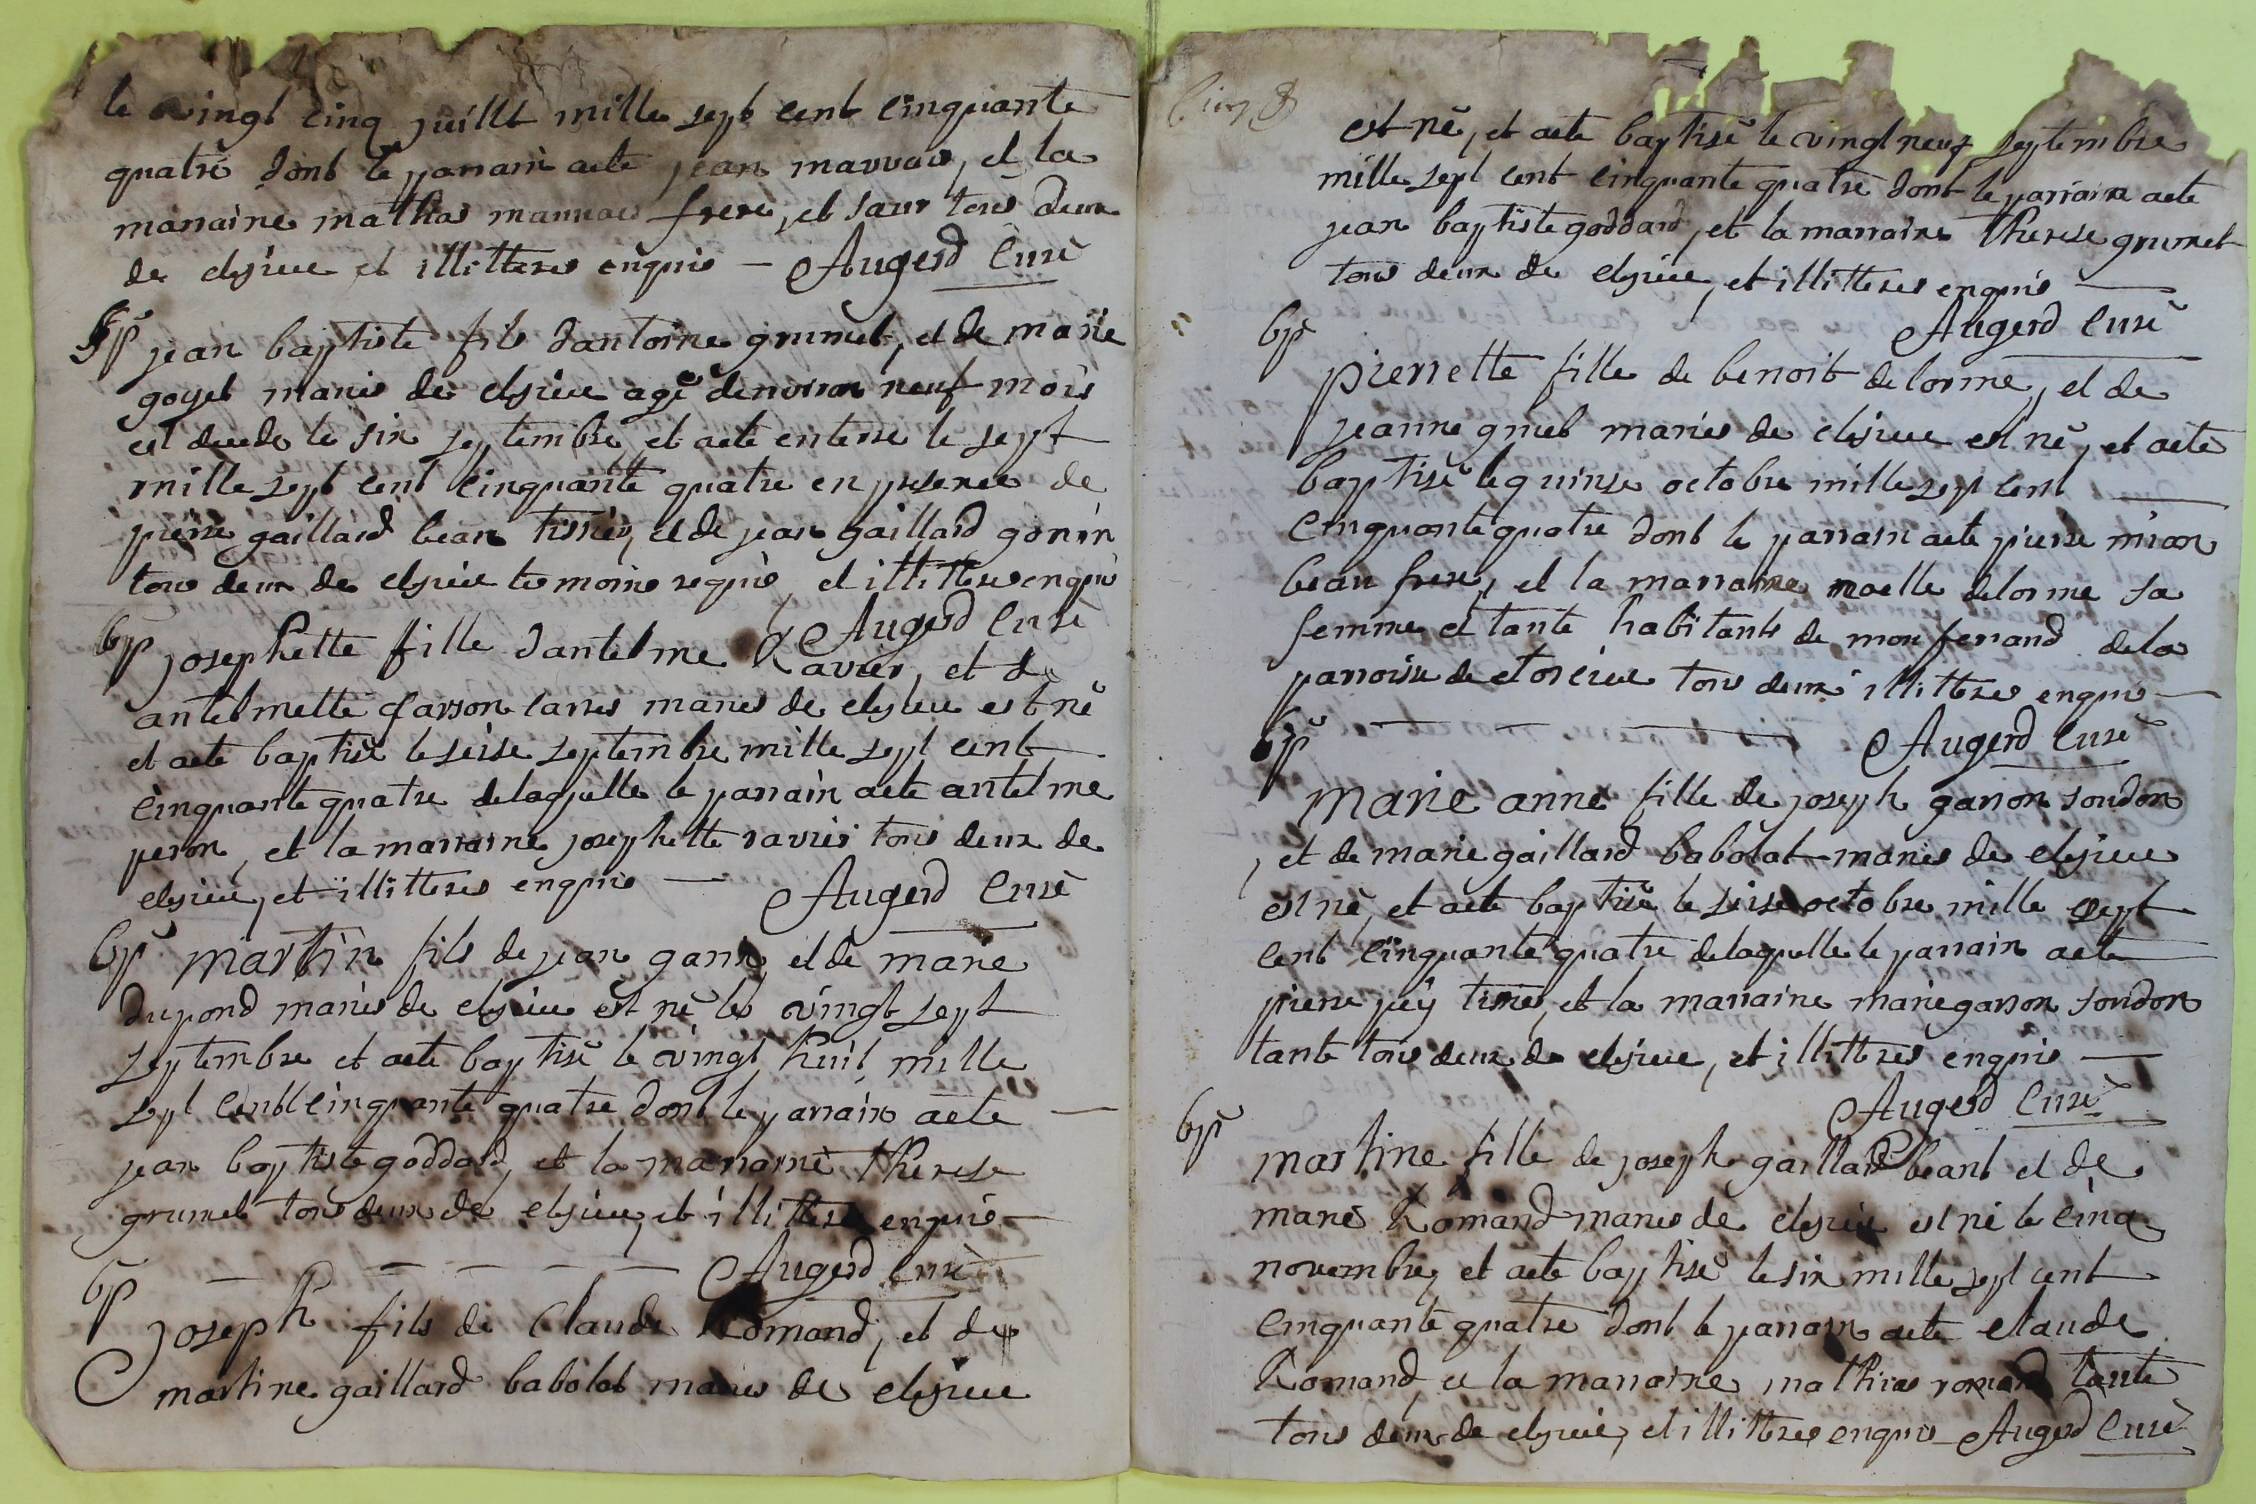 le vingt cinq juillt mille sept cent cinquante
quatre dont le parrain aeté jean marvais, et la
marraine mathias marvais frere, et saur tous deux
de elesieu et illitteres enquis — Augerd Curé
Sp jean baptiste fils dantoine grumet, et de marie
goyet maries de elesieu agé denviron neuf mois
est decede le six septembre et aeté enterre le sept
mille sept cent cinquante quatre en presence de
pierre gaillard bean tissier, et de jean gaillard gonin
tous deux de elesieu temoins requis, et illitteres enquis
Augerd Curé
bp josephette fille dantelme Ravier, et de
antelmette garson carres maries de elesieu est né
et aeté baptisé le seise septembre mille sept cent
cinquante quatre delaquelle le parrain aeté antelme
peron, et la marraine josephette ravier tous deux de
elesieu, et illitteres enquis — Augerd Curé
bp martin fils de jean ganin, et de marie
dupond maries de elesieu est né le vingt sept
septembre et aeté baptisé le vingt huit mille
sept cent cinquante quatre dont le parrain aeté —
jean baptiste goddard, et la marraine therese
grumet tous deux de elesieu, et illitteres enquis —
bp — — — — — Augerd Curé
joseph fils de Claude Romand, et de
martine gaillard babolat maries de elesieu
est né, et aeté baptisé le vingt neuf septembre
mille sept cent cinquante quatre dont le parrain aeté
jean baptiste goddard, et la marraine therese grumet
tous deux de elesieu, et illitteres enquis —
bp Augerd Curé
pierrette fille de benoit delorme, et de
jeanne griet maries de elesieu est né, et aeté
baptisé le quinse octobre mille sept cent —
cinquante quatre dont le parrain aeté pierre mion
beau frere, et la marraine maelle delorme sa
femme et tante habitants de mon ferrand dela
parroisse de etorcieu tous deux illitteres enquis —
bp — — — — Augerd Curé
marie anne fille de joseph garson soudon
, et de marie gaillard babolat maries de elesieu
est né, et aeté baptisé le seise octobre mille sept
cent cinquante quatre delaquelle le parrain aeté —
pierre juy tissier, et la marraine marie garson soudon
tante tous deux de elesieu, et illitteres enquis —
Augerd Curé
bp
martine fille de joseph gaillard beant et de
marie Romand maries de elesieu est né le cinq
novembre, et aeté baptisé le six mille sept cent
cinquante quatre dont le parrain aeté claude
Romand, et la marraine mathias romand tante
tous deux de elesieu, et illitteres enquis — Augerd Curé